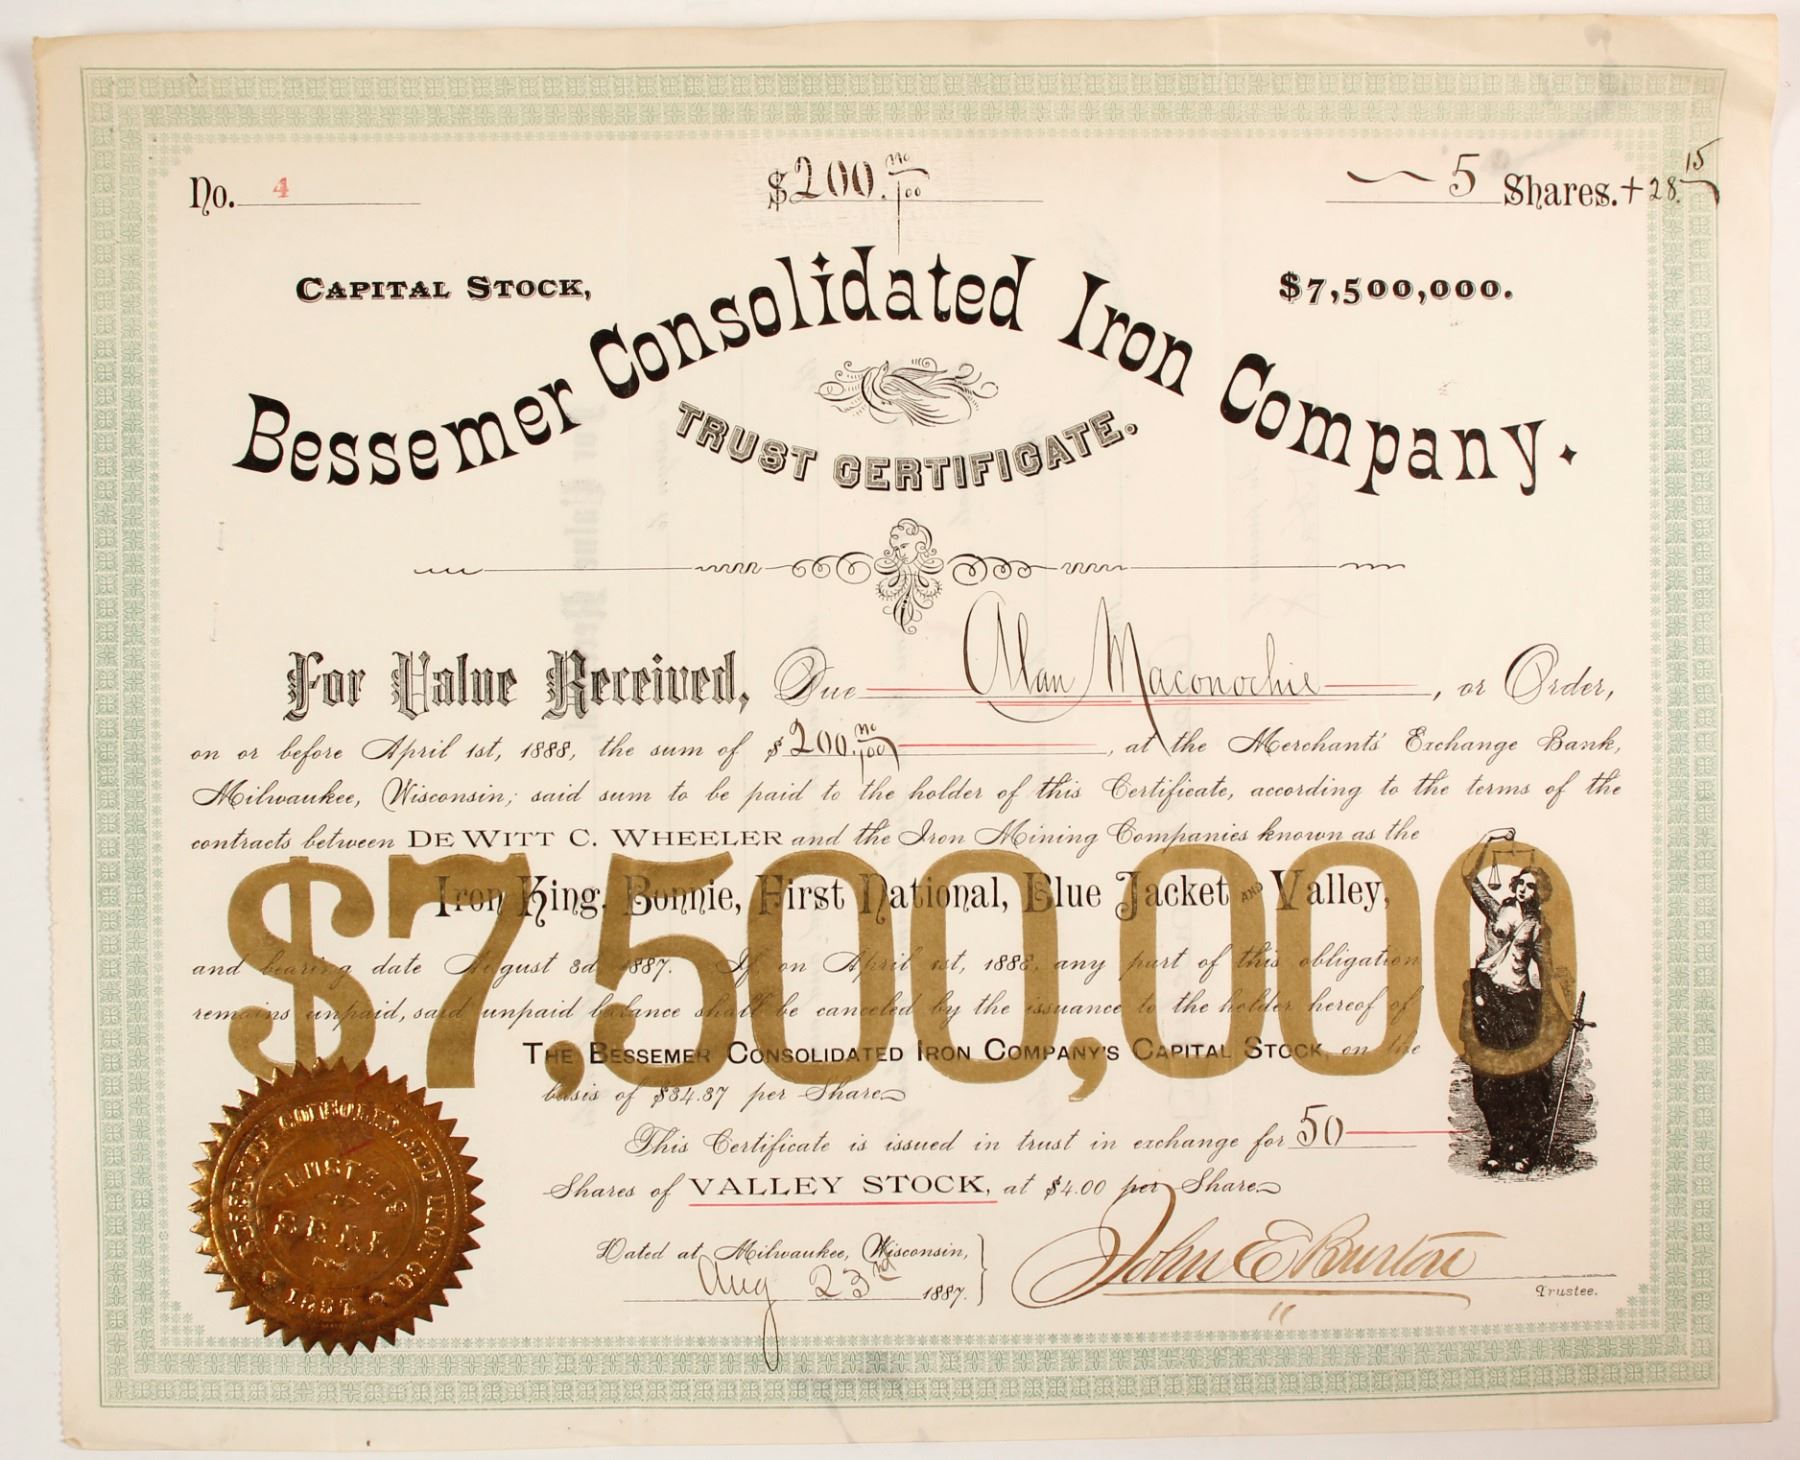 No. 4
$200. no/100
5 Shares. + 28. 15
CAPITAL STOCK,
$7,500,000.
Bessemer Consolidated Iron Company.
TRUST CERTIFICATE.
For Value Received, Due Alan Maconochie, or Order,
on or before April 1st, 1888, the sum of $200. no/100, at the Merchants' Exchange Bank,
Milwaukee, Wisconsin; said sum to be paid to the holder of this Certificate, according to the terms of the
contracts between DE WITT C. WHEELER and the Iron Mining Companies known as the
$7,500,000
Iron King, Bonnie, First National, Blue Jacket AND Valley,
and bearing date August 3d 1887. If, on April 1st, 1888, any part of this obligation
remains unpaid, said unpaid balance shall be canceled by the issuance to the holder hereof of
THE BESSEMER CONSOLIDATED IRON COMPANY'S CAPITAL STOCK, on the
basis of $34.37 per Share
This Certificate is issued in trust in exchange for 50
Shares of VALLEY STOCK, at $4.00 per Share
Dated at Milwaukee, Wisconsin,
Aug 23nd 1887.
John E Burton
Trustee.
BESSEMER CONSOLIDATED IRON CO.
TRUSTEES
SEAL
1887